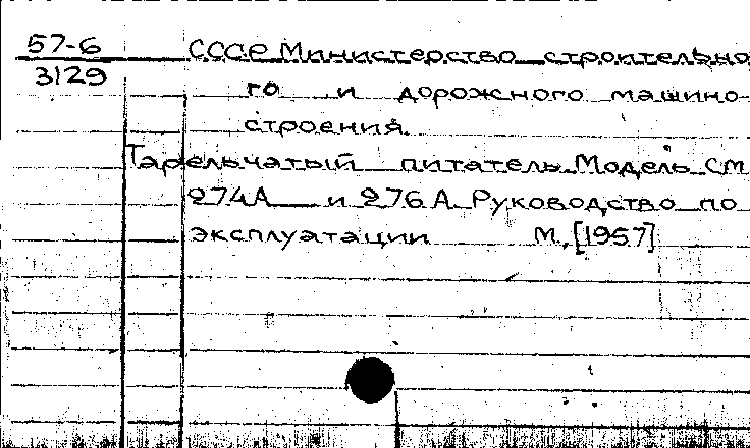 57-6
3129
СССР Министерство строительно
го и дорожного машино-
строения.
Тарельчатый питатель. Модель СМ
274А и 276А. Руководство по
эксплуатации М., [1957]